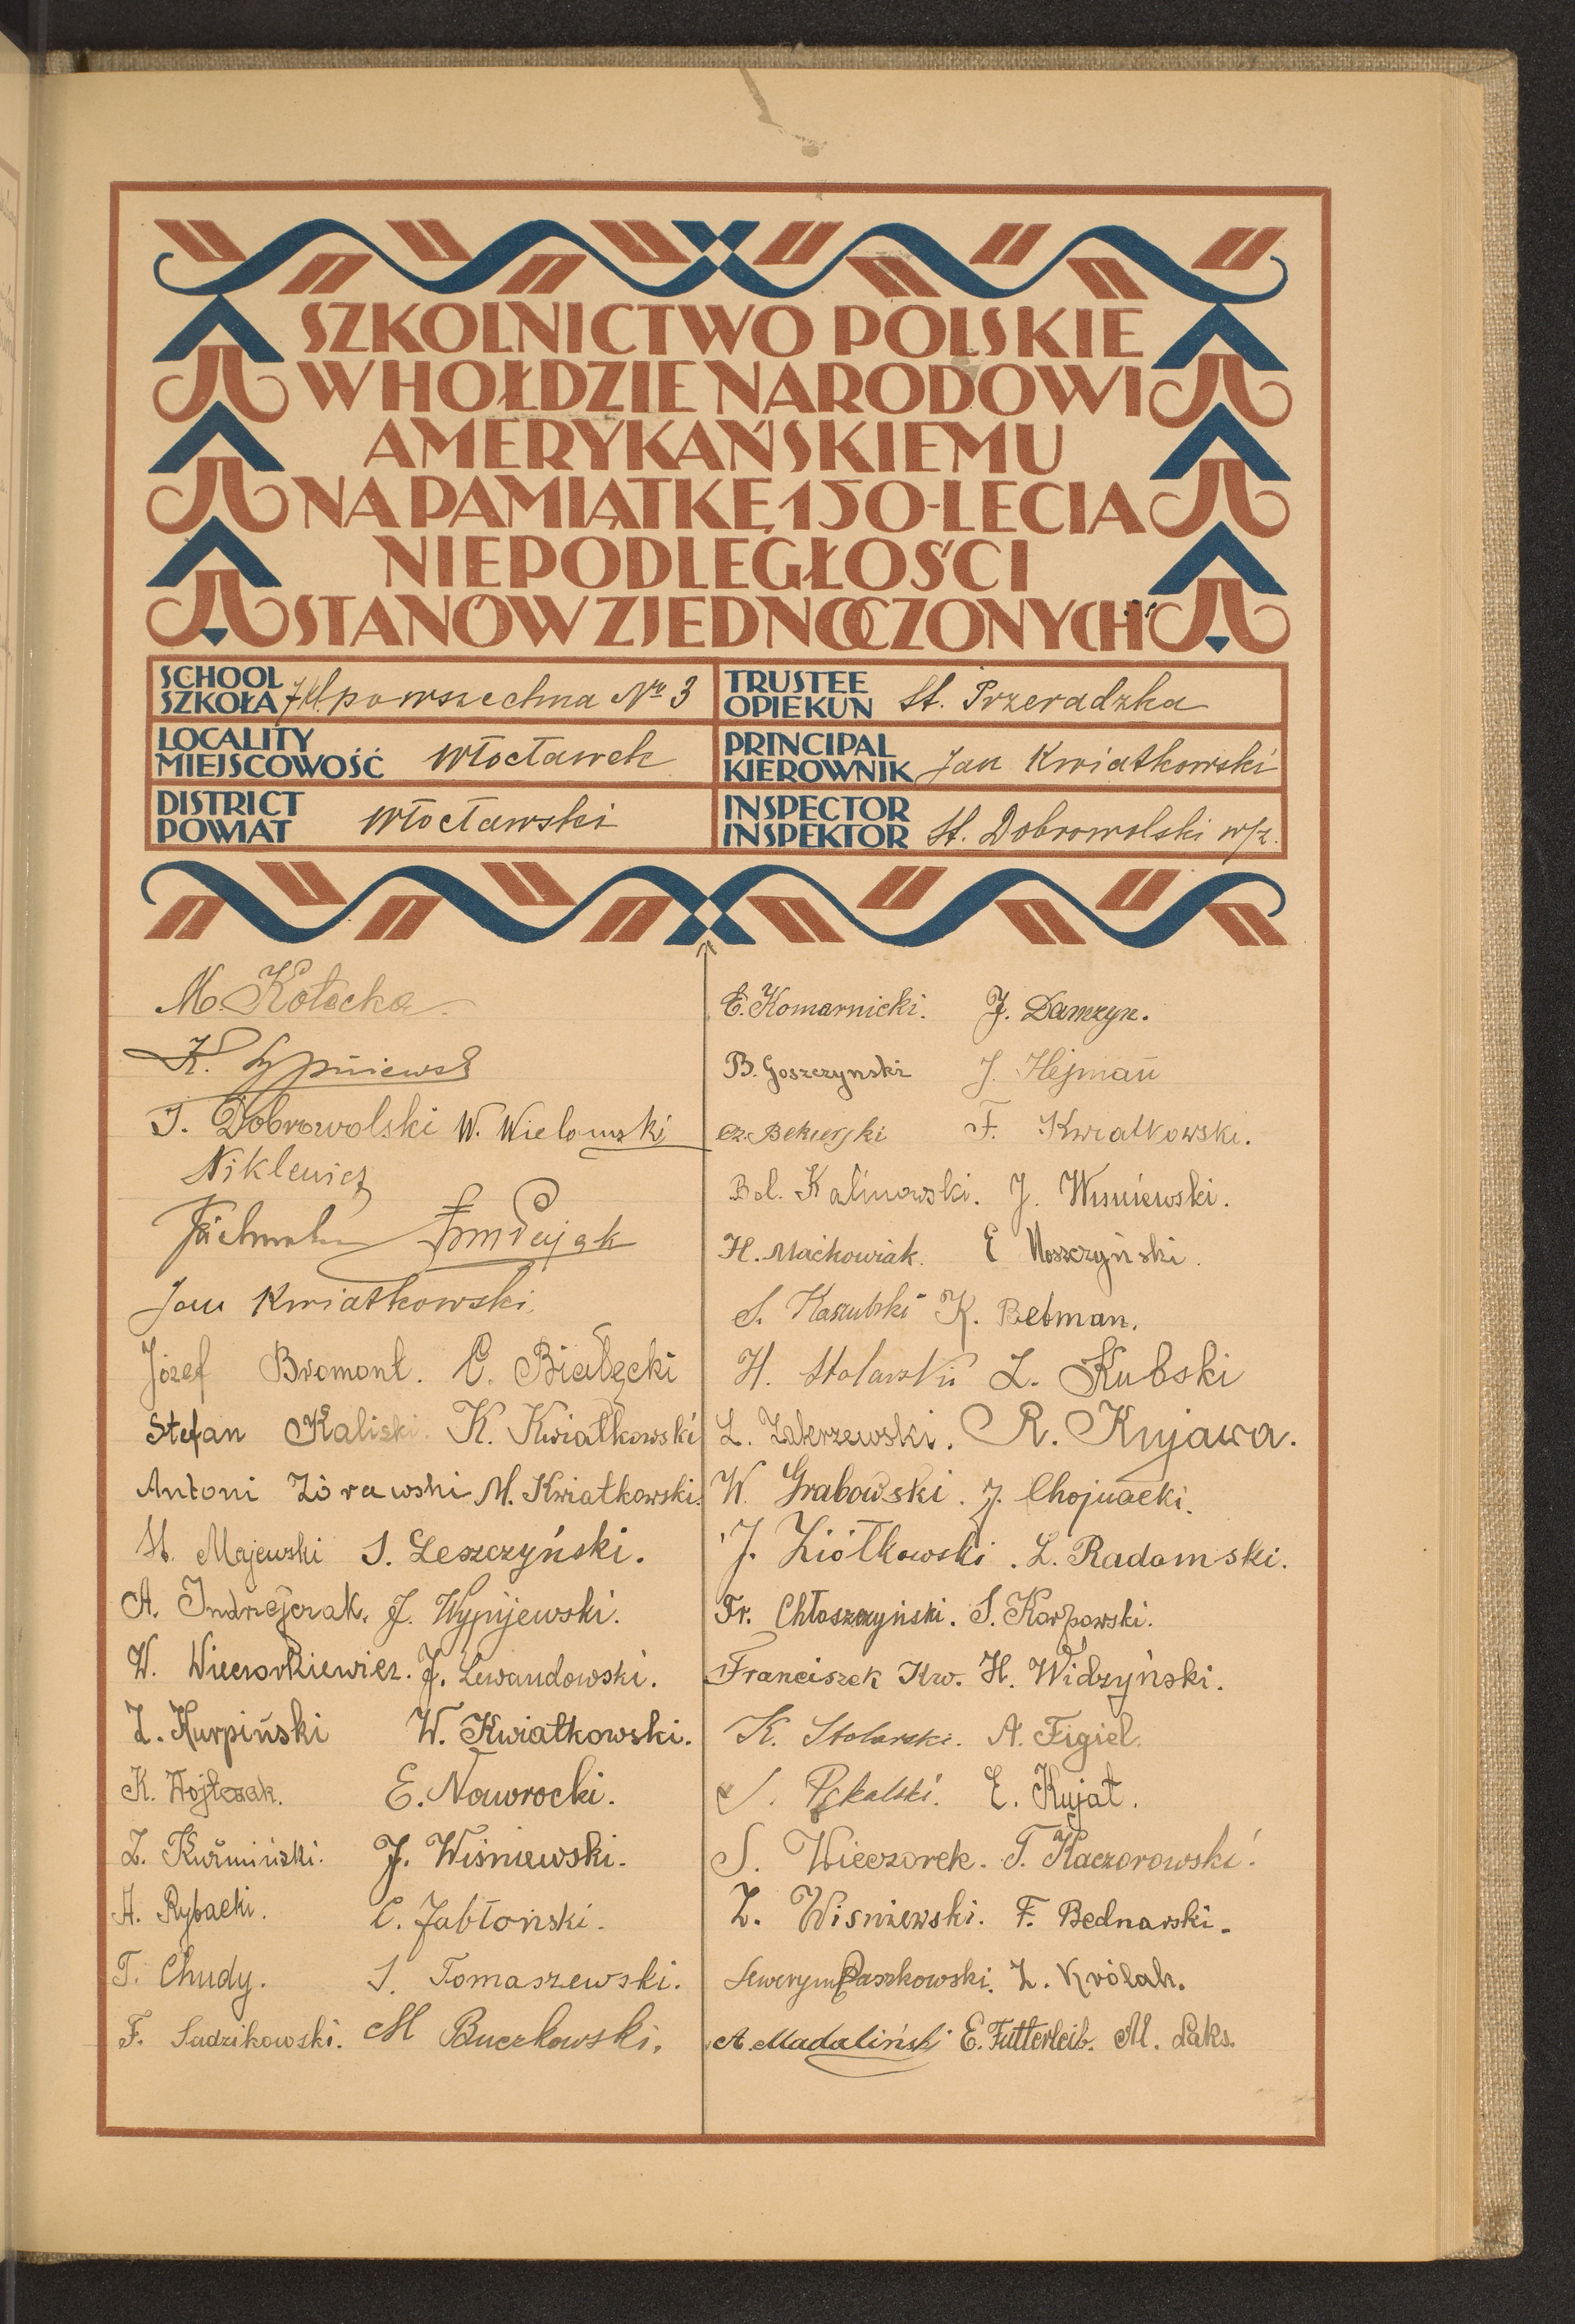 SZKOLNICTWO POLSKIE
W HOŁDZIE NARODOWI
AMERYKAŃSKIEMU
NA PAMIĄTKĘ 150-LECIA
NIEPODLEGŁOŚCI
STANÓW ZJEDNOCZONYCH
SCHOOL
SZKOŁA 7 kl. powszechna No 3
TRUSTEE
OPIEKUN St. Przeradzka
LOCALITY
MIEJSCOWOŚĆ Włocławek
PRINCIPAL
KIEROWNIK Jan Kwiatkowski
DISTRICT
POWIAT Włocławski
INSPECTOR
INSPEKTOR St. Dobrowolski w/z.
M. Kołecka
K. Sypniewsk
T. Dobrowolski W. Wielomski
Niklewicz
Pająk
Jan Kwiatkowski
Józef Bromont. C. Białęcki
Stefan Kaliski. K. Kwiatkowski
Antoni Żórawski M. Kwiatkowski.
St. Majewski S. Leszczyński.
A. Indrzejczak. J. Wypijewski.
W. Wieczorkiewicz. J. Lewandowski.
Z. Kurpiński W. Kwiatkowski.
K. Wojtczak. E. Nawrocki.
Z. Kuźmiński. J. Wiśniewski.
A. Rybacki. C. Jabłoński.
T. Chudy. S. Tomaszewski.
F. Sadzikowski. M Buczkowski.
E. Komarnicki. J. Damzyn.
B. Goszczynski J. Hejman
Cz. Bekierski F. Kwiatkowski.
Bol. Kalinowski. J. Wisniewski.
H. Maćkowiak. E Noszczyński.
S. Kaszubski K. Betman.
H. Stolarski L. Kubski
L. Zakrzewski. R. Kujawa.
W. Grabowski. J. Chojnacki.
J. Ziółkowski. L. Radomski.
Fr. Chłoszczyński. S. Karpowski.
Franciszek Kw. H. Widzyński.
K. Stolarski. A. Figiel.
S. Pękalski. E. Kujat.
S. Wieczorek. T. Kaczorowski.
Z. Wisniewski. F. Bednarski.
Seweryn Paszkowski. Z. Królak.
A. Madaliński E. Futterleib. M. Laks.